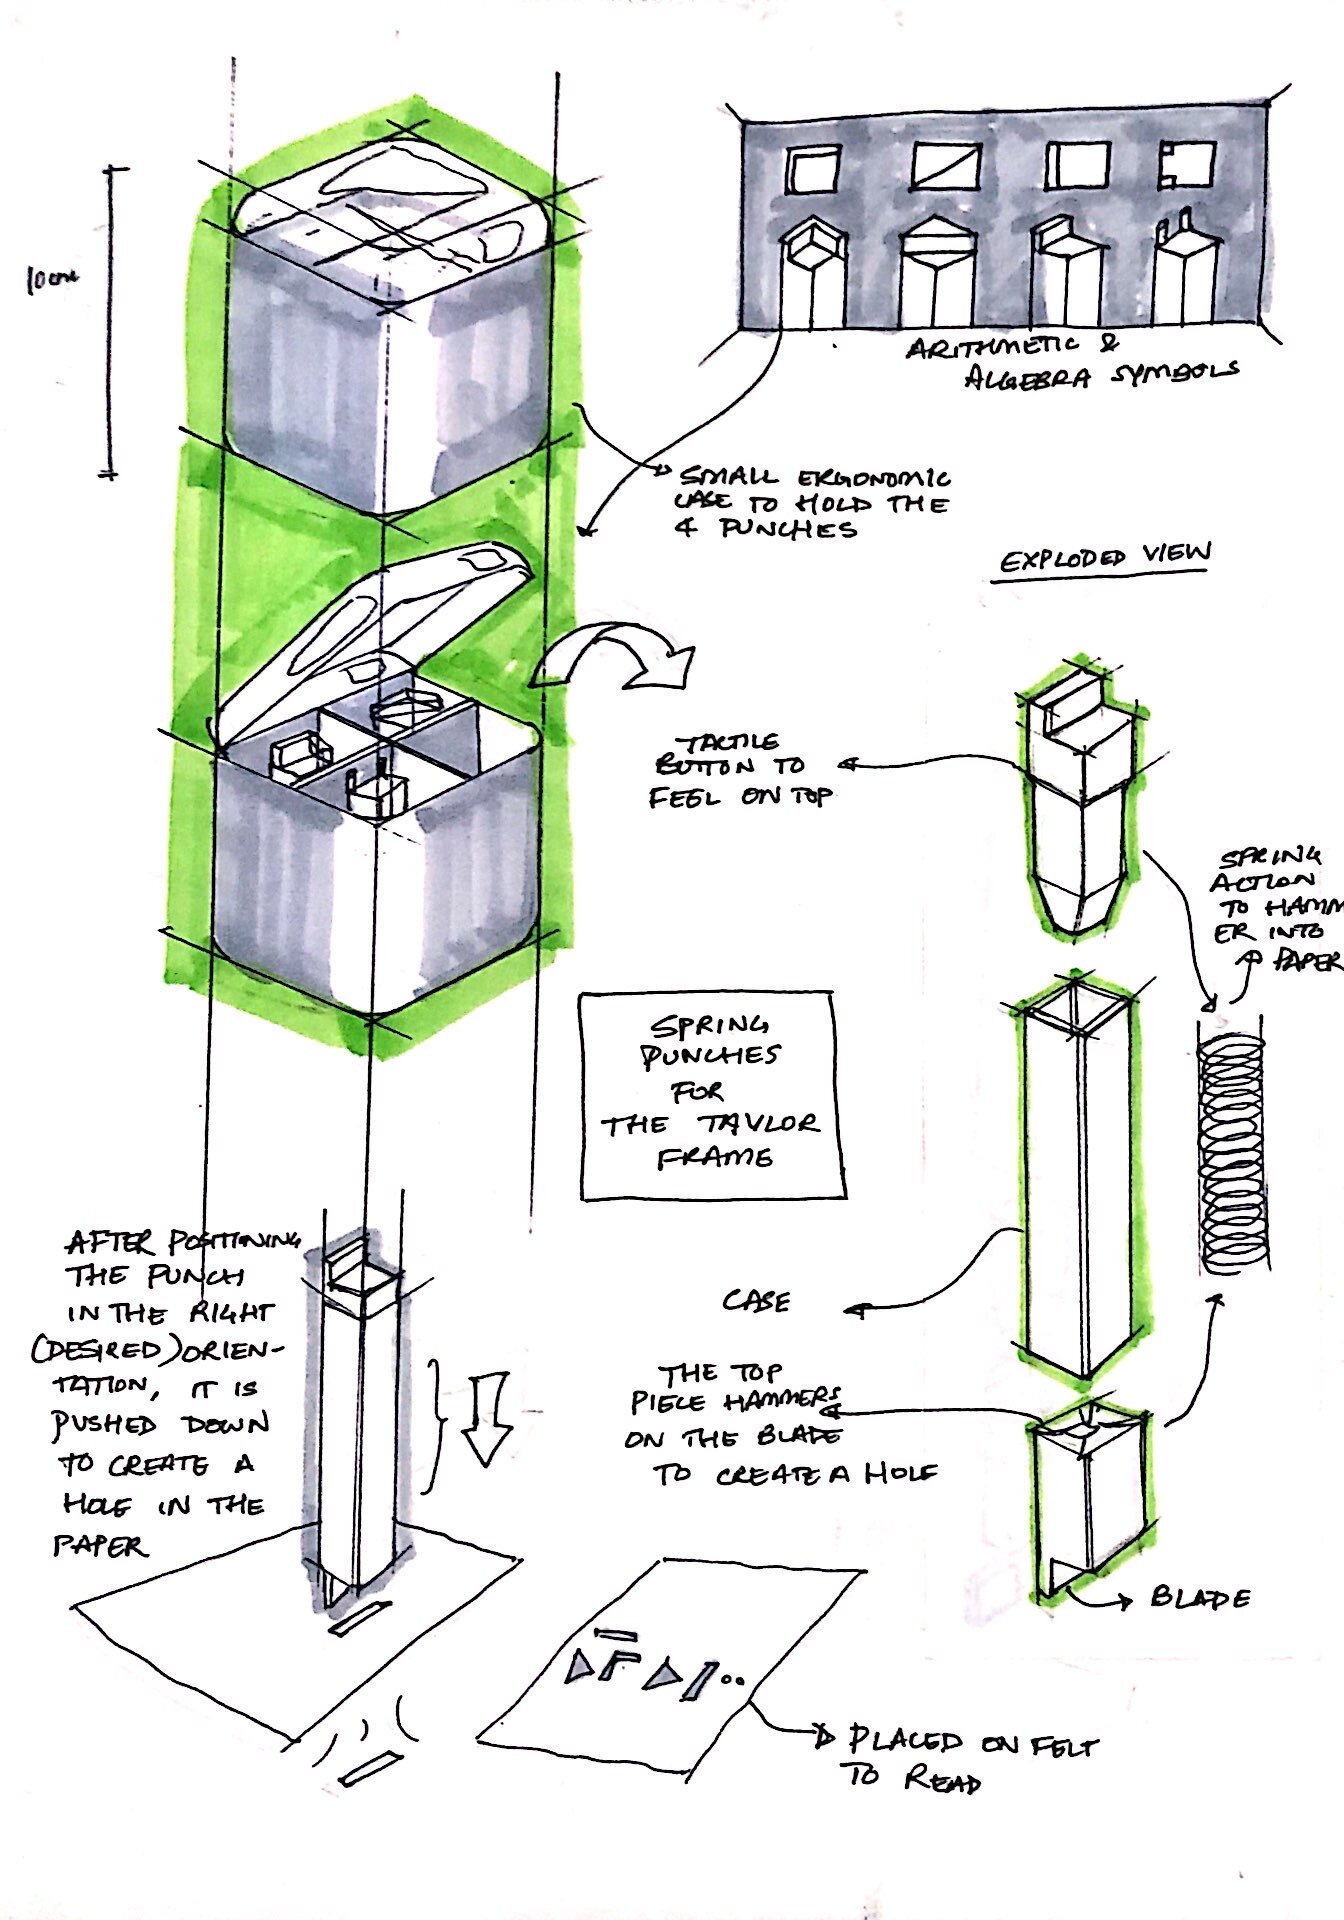 10cm
ARITHMETIC &
ALGEBRA SYMBOLS
SMALL ERGONOMIC
CASE TO HOLD THE
4 PUNCHES
EXPLODED VIEW
TACTILE
BUTTON TO
FEEL ON TOP
SPRING
ACTION
TO HAMM
ER INTO
PAPER
SPRING
PUNCHES
FOR
THE TAYLOR
FRAME
AFTER POSITIONING
THE PUNCH
IN THE RIGHT
(DESIRED) ORIEN-
TATION, IT IS
PUSHED DOWN
TO CREATE A
HOLE IN THE
PAPER
CASE
THE TOP
PIECE HAMMERS
ON THE BLADE
TO CREATE A HOLE
BLADE
PLACED ON FELT
TO READ